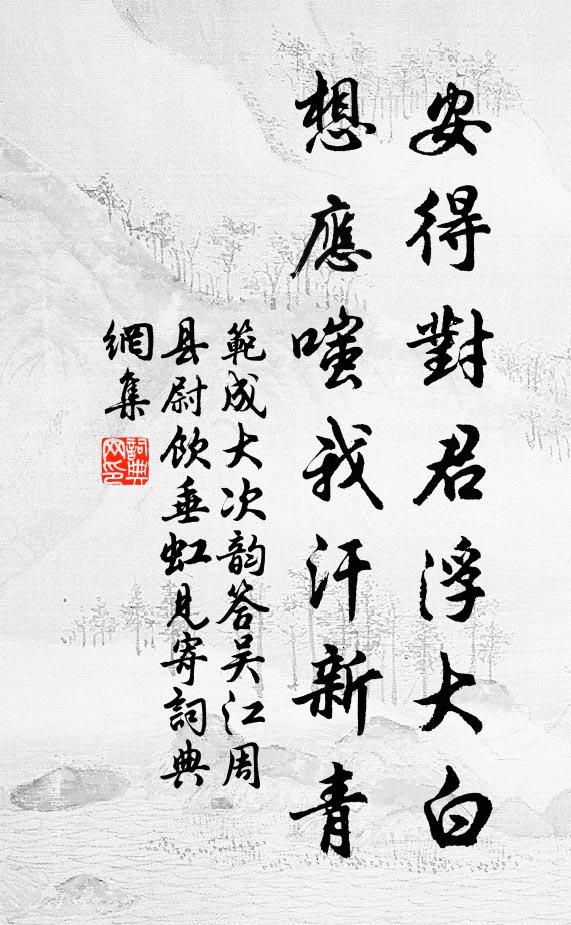 安得對君浮大白
想應嗤我汗新青
範成大次韵答吴江周
县尉饮垂虹見寄詞典
網集
詞典網印